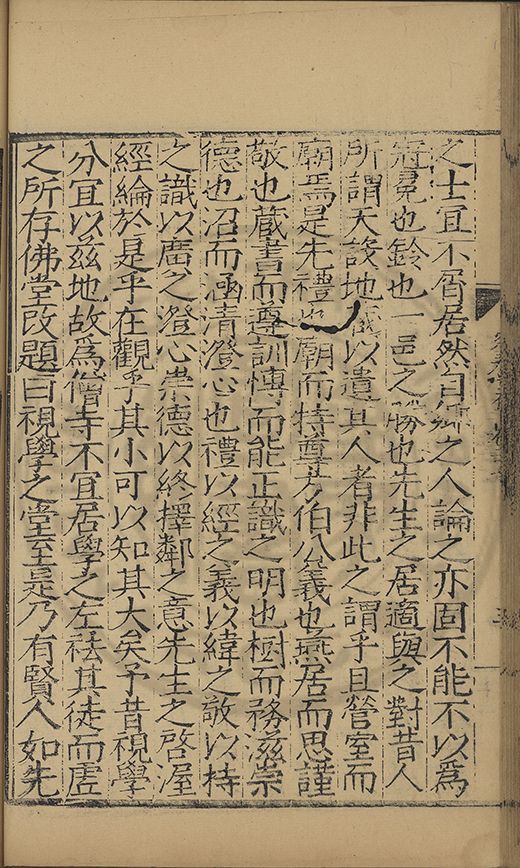 之士宜不屑居然自鄉之人論之亦固不能不以爲
冠冕也鈴也一邑之勝也先生之居適與之對昔人
所謂天設地藏以遺其人者非此之謂乎且營室而
廟焉是先禮也廟而特尊方伯公義也燕居而思謹
敬也蔵書而遵訓慱而能正識之明也樹而務滋崇
德也沼而涵清澄心也禮以經之義以緯之敬以持
之識以廣之澄心崇德以終擇鄰之意先生之啓渥
經綸於是乎在觀乎其小可以知其大矣予昔視學
分宜以兹地故爲僧寺不宜居學之左祛其徒而虗
之所存佛堂改題曰視學之堂至是乃有賢人如先